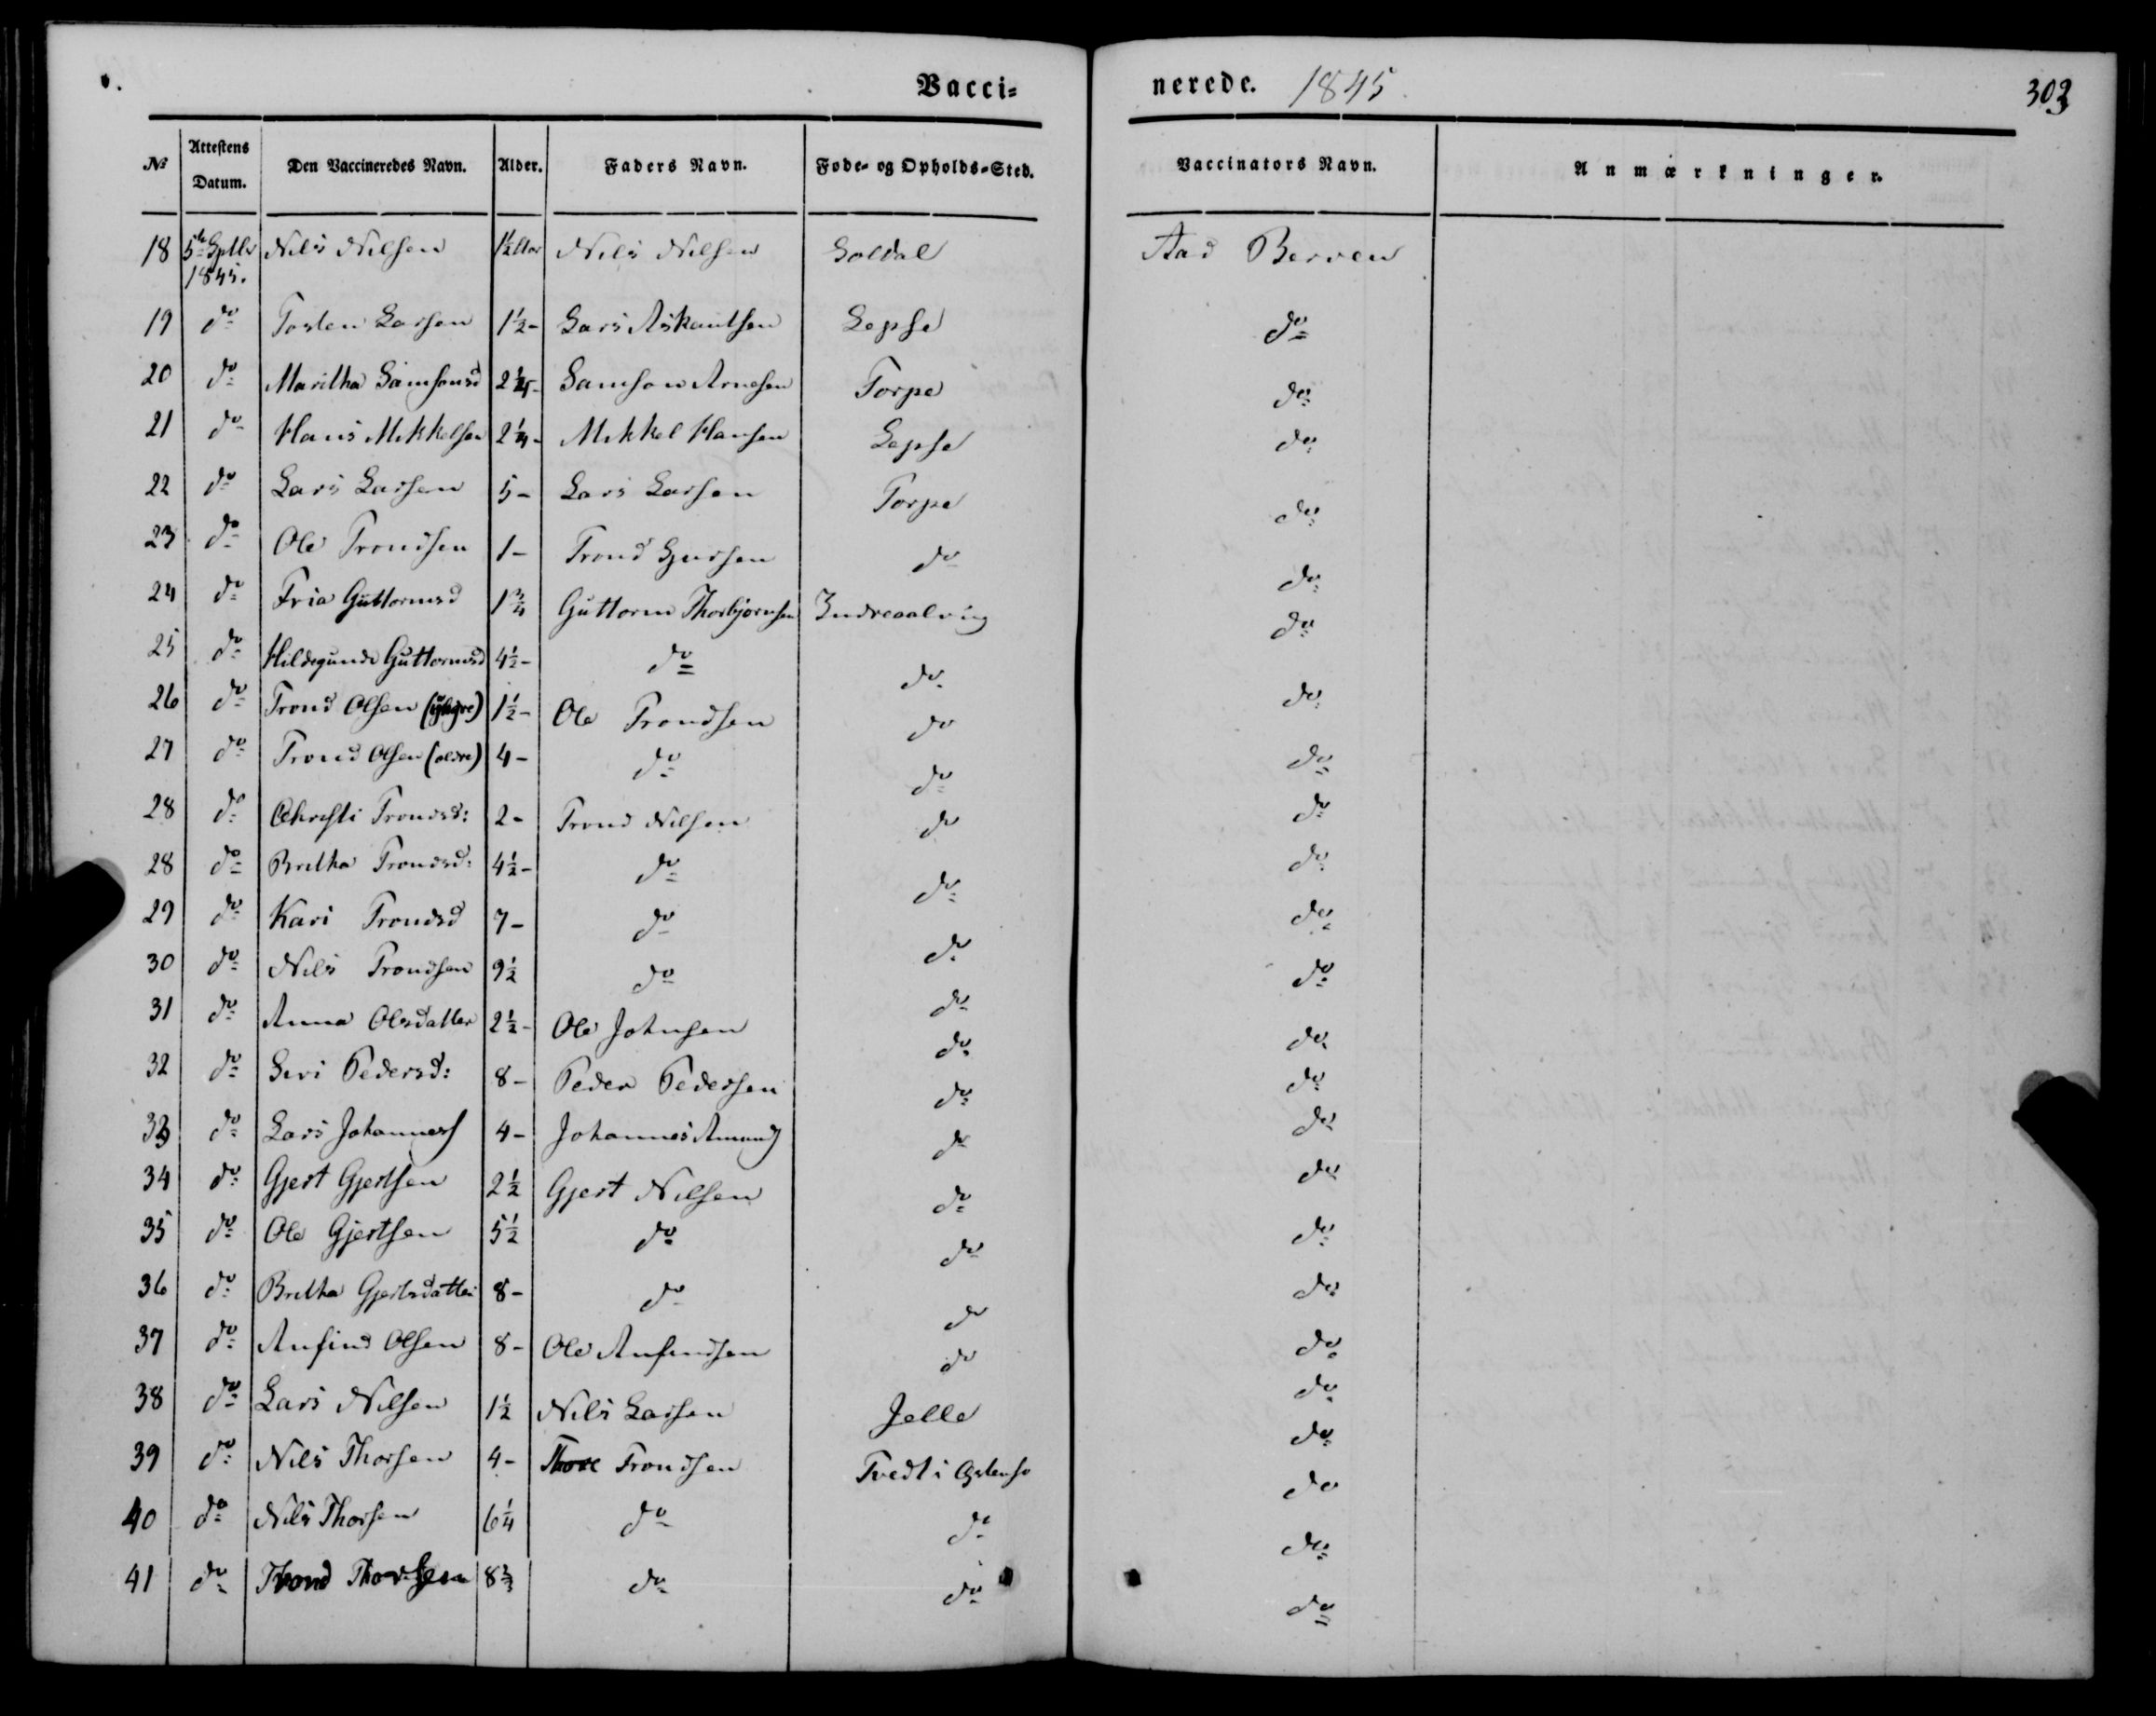 Vacci= nerede. 1845. 303
№ Attestens Datum. Den Vaccineredes Navn. Alder. Faders Navn. Føde- og Opholds-Sted. Vaccinators Navn. Anmærkninger.
18 5te Sptbr 1845. Nils Nilsen 1½ Nils Nilsen Soldal Aad Berven
19 do Torsten Larsen 1½ - Lars Lepse do
20 do Maritha Samsonsd 2¼ - Samson Arnesen Torpe do
21 do Hans Mikkelsen 2¼ - Mikkel Hansen Lepse do
22 do Lars Larsen 5 - Lars Larsen Torpe do
23 do Ole Trondsen 1 - Trond do do
24 do Guttormsd 1¾ Guttorm Thorbjørnsen Indreaalvig do
25 do Hildegunde Guttormsd 4½ - do do do
26 do Trond Olsen (yngre) 1½ - Ole Trondsen do do
27 do Trond Olsen (ældre) 4 - do do do
28 do Trondsd: 2 - Trond Nilsen do do
28 do Britha Trondsd: 4½ - do do do
29 do Kari Trondsd 7 - do do do
30 do Nils Trondsen 9½ do do do
31 do Anna Olsdatter 2½ - Ole Johnsen do do
32 do Siri Pedersd: 8 - Peder Pedersen do do
33 do Lars Johanness 4 - Johannes Amunds do do
34 do Gjert Gjertsen 2½ Gjert Nilsen do do
35 do Ole Gjertsen 5½ do do do
36 do Britha Gjertsdatter 8 - do do do
37 do Anfind Olsen 8 - Ole Anfindsen do do
38 do Lars Nilsen 1½ Nils Larsen Jelle do
39 do Nils Thorsen 4 - Thore Trondsen Tvedt i do
40 do Nils Thorsen 6¼ do do do
41 do Trond Thorsen 8⅔ do do do